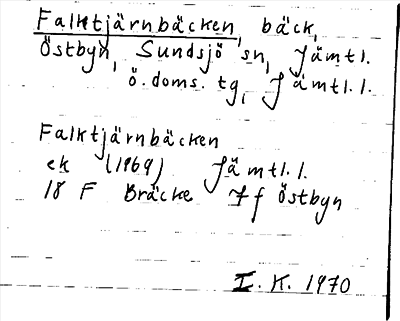 Falktjärnbäcken, bäck,
Östbyn, Sundsjö sn, Jämtl.
ö. doms. tg, Jämtl. l.
Falktjärnbäcken
ek (1969) Jämtl. l.
18 F Bräcke 7 f Östbyn
I. K. 1970